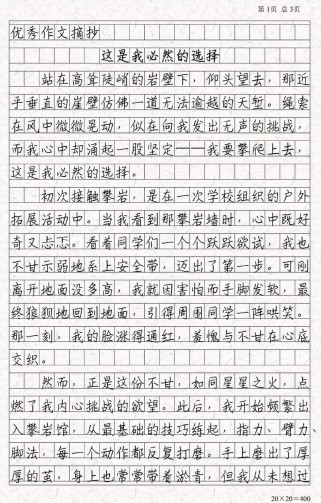 第1页 总3页
优秀作文摘抄
这是我必然的选择
站在高耸陡峭的岩壁下，仰头望去，那近
乎垂直的崖壁仿佛一道无法逾越的天堑。绳索
在风中微微晃动，似在向我发出无声的挑战，
而我心中却涌起一股坚定——我要攀爬上去，
这是我必然的选择。
初次接触攀岩，是在一次学校组织的户外
拓展活动中。当我看到那攀岩墙时，心中既好
奇又忐忑。看着同学们一个个跃跃欲试，我也
不甘示弱地系上安全带，迈出了第一步。可刚
离开地面没多高，我就因害怕而手脚发软，最
终狼狈地回到地面，引得周围同学一阵哄笑。
那一刻，我的脸涨得通红，羞愧与不甘在心底
交织。
然而，正是这份不甘，如同星星之火，点
燃了我内心挑战的欲望。此后，我开始频繁出
入攀岩馆，从最基础的技巧练起，指力、臂力、
脚法，每一个动作都反复打磨。手上磨出了厚
厚的茧，身上也常常带着淤青，但我从未想过
20×20=400